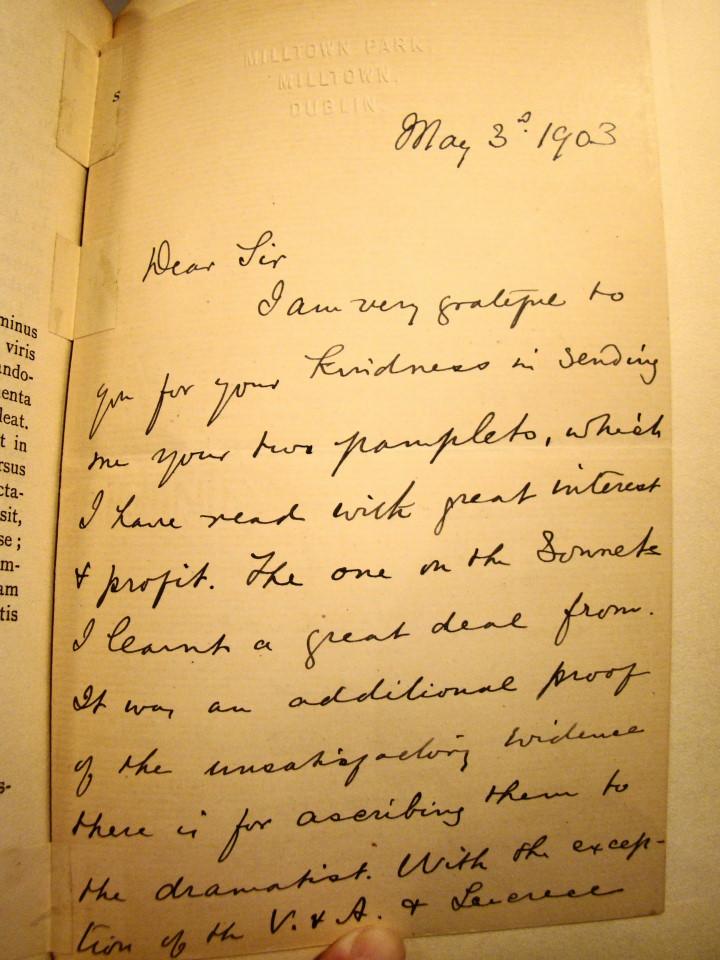 minus
viris
ando-
enta
leat.
t in
rsus
cta-
sit,
se;
m-
am
tis
s-
s
MILLTOWN PARK,
MILLTOWN,
DUBLIN.
May 3d. 1903
Dear Sir
I am very grateful to
you for your kindness in sending
me your two pamplets, which
I have read with great interest
& profit. The one on the Sonnets
I learnt a great deal from.
It was an additional proof
of the unsatisfactory evidence
there is for ascribing them to
the dramatist. With the excep-
tion of the V. & A. & Lucrece